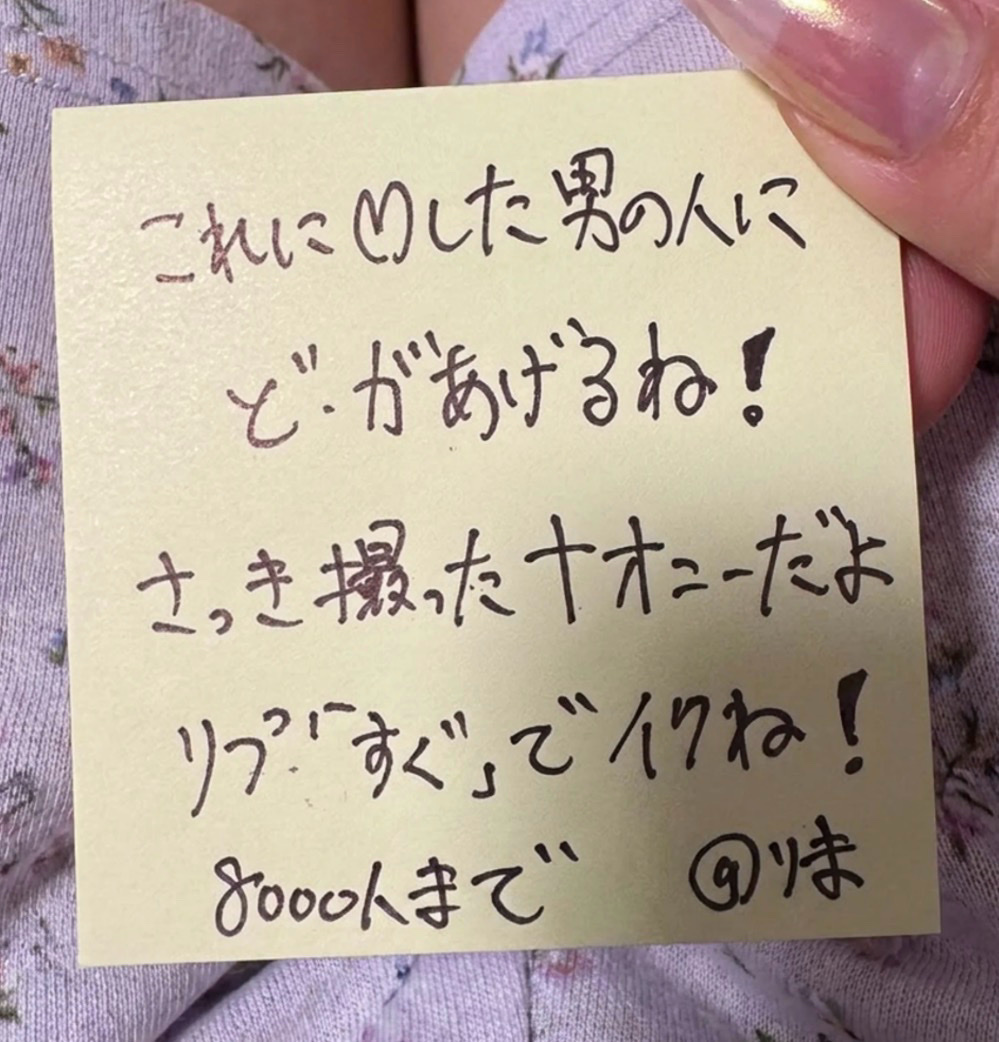 これに♡した男の人に
ど.があげるね!
さっき撮ったナオニーだよ
リプ「すぐ」でイクね!
8000人まで @りま